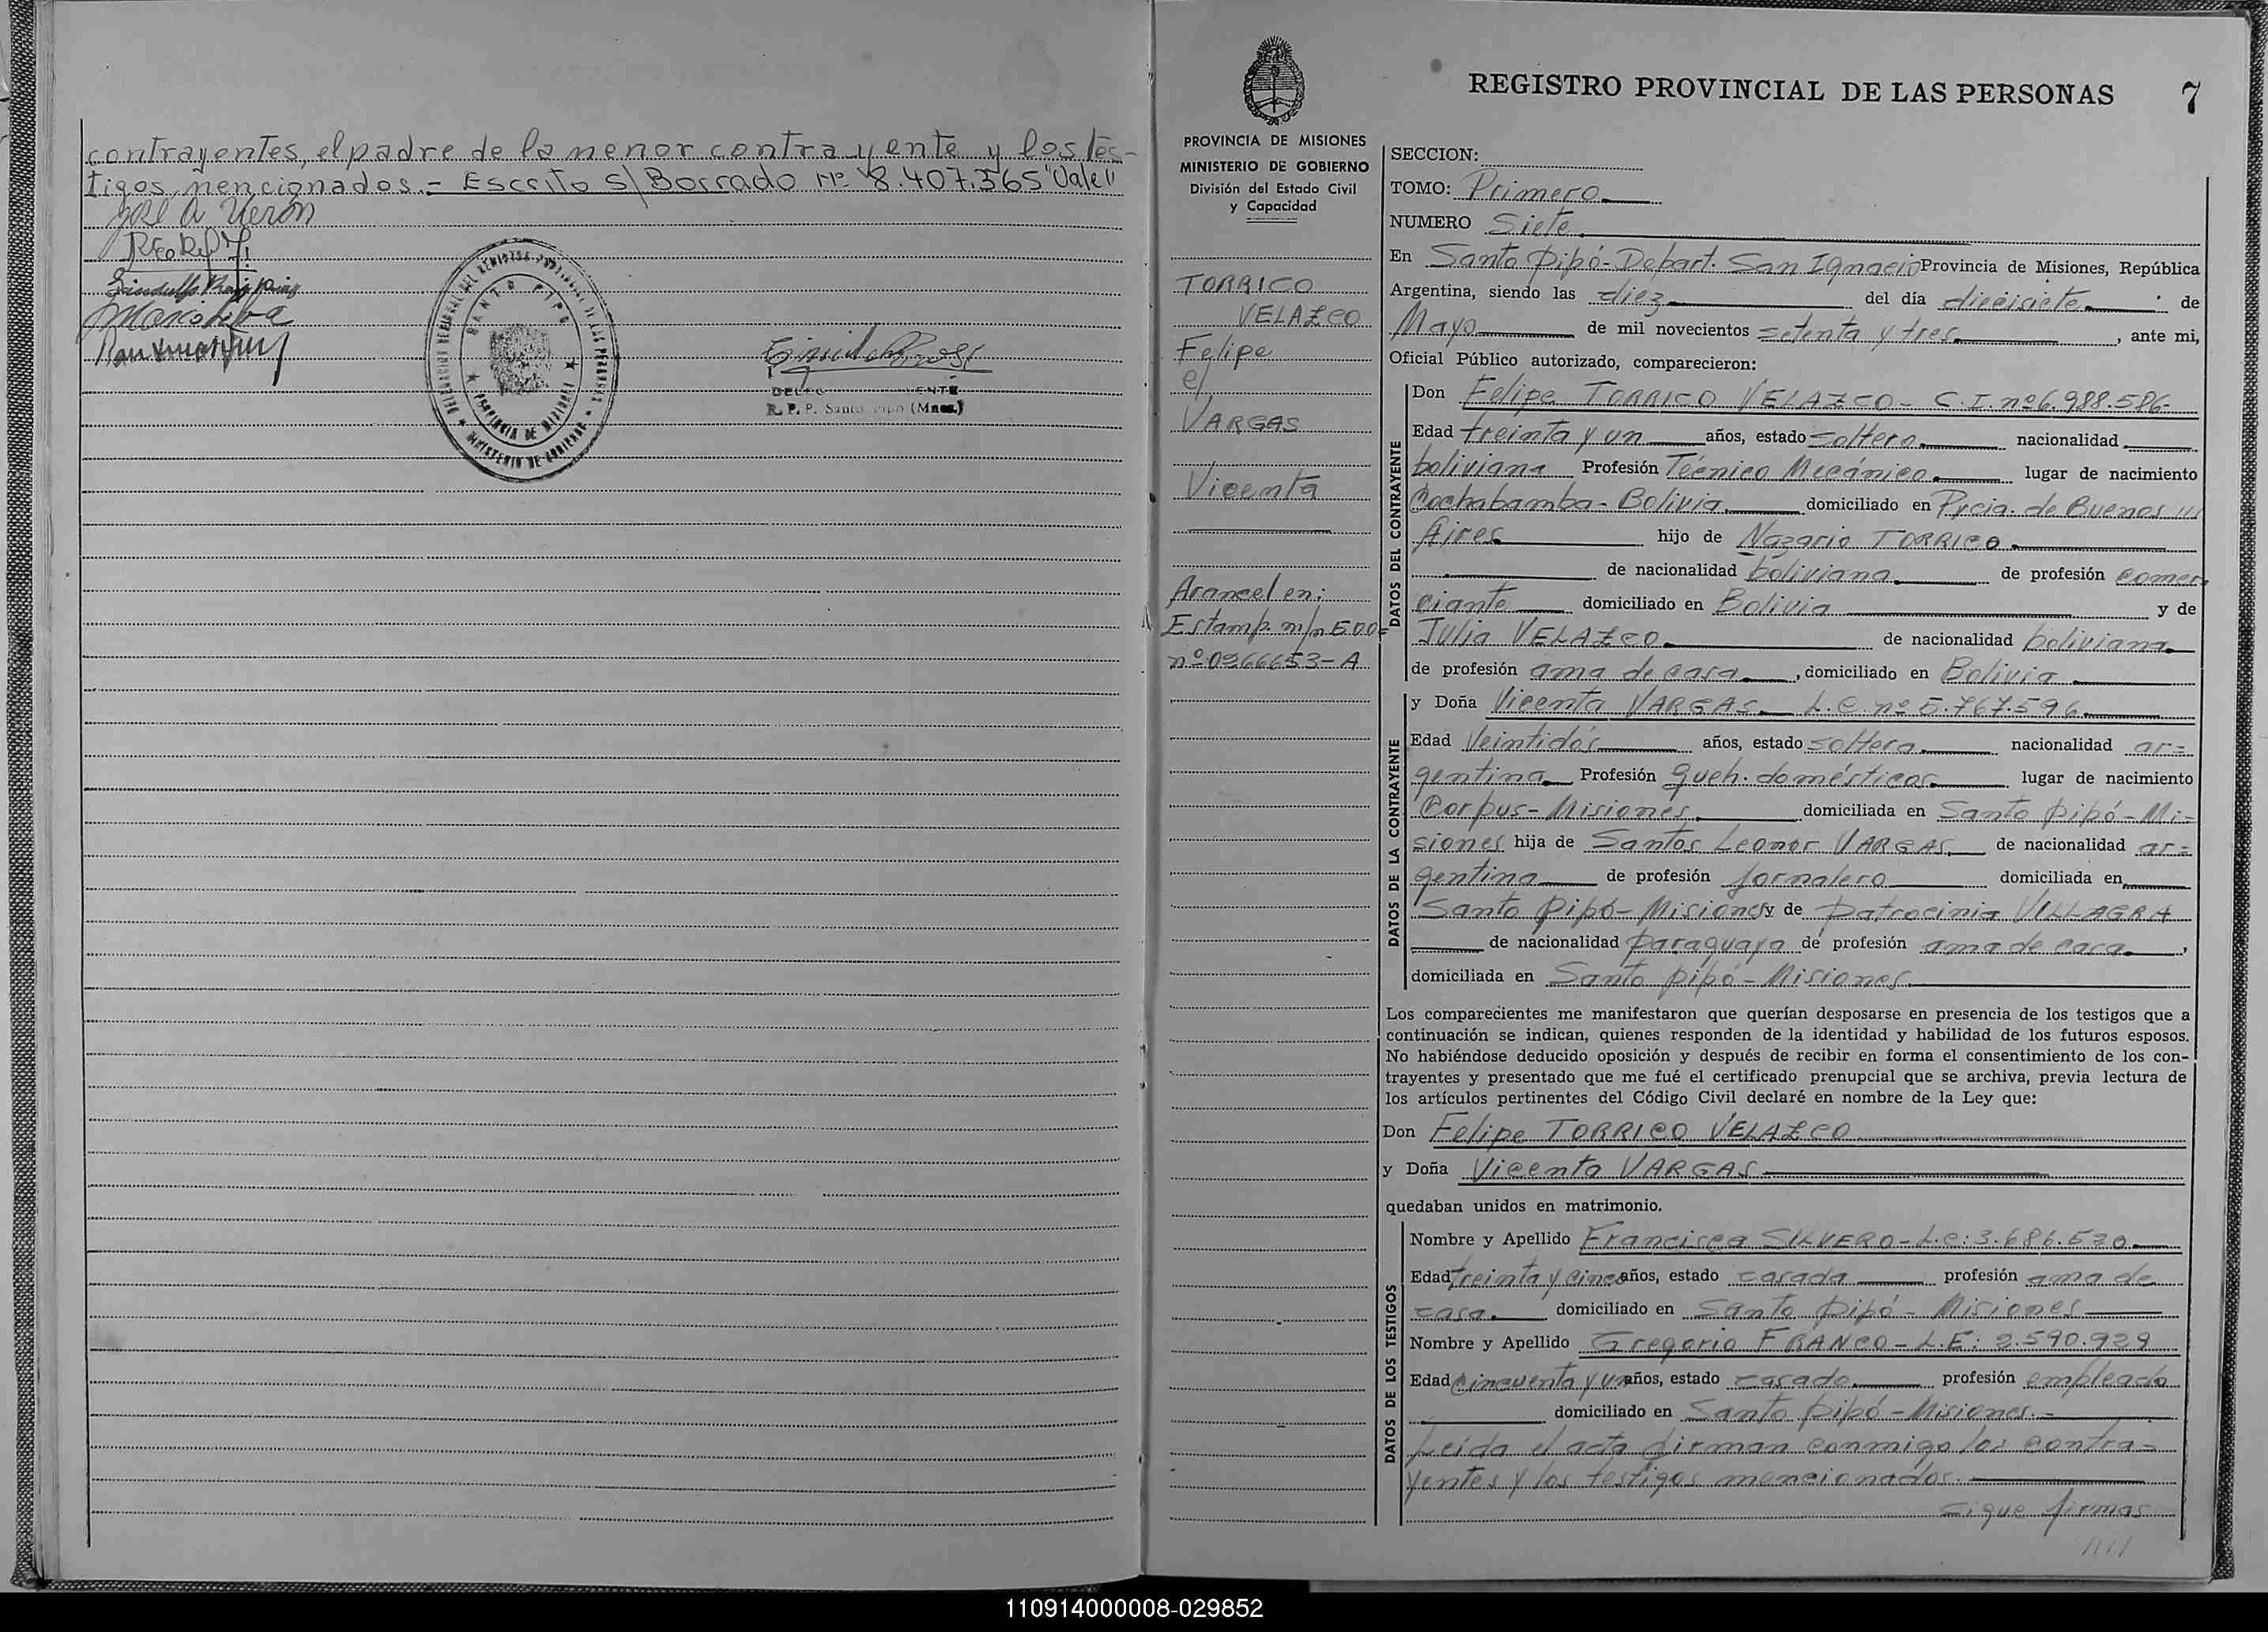 contrayentes, el padre de la menor contrayente y los tes-
tigos mencionados.- Escrito s/ Borrado nº 8.407.365 "Vale"
José A Verón
DELEG ENTE
R. P. P. Santo Pipó (Mnes.)
SANTO PIPO
PROVINCIA DE MISIONES
MINISTERIO DE GOBIERNO
PROVINCIA DE MISIONES
MINISTERIO DE GOBIERNO
División del Estado Civil
y Capacidad
TORRICO
VELAZCO
Felipe
c/
VARGAS
Vicenta
Arancel en:
Estamp. m/n 5.00=
nº 0966653-A
REGISTRO PROVINCIAL DE LAS PERSONAS 7
SECCION:
TOMO: Primero
NUMERO Siete
En Santo Pipó-Depart. San Ignacio Provincia de Misiones, República
Argentina, siendo las diez del día diecisiete de
Mayo de mil novecientos setenta y tres, ante mi,
Oficial Público autorizado, comparecieron:
DATOS DEL CONTRAYENTE
Don Felipe TORRICO VELAZCO- C.I. nº 6.988.586-
Edad treinta y un años, estado soltero nacionalidad
boliviana Profesión Técnico Mecánico lugar de nacimiento
Cochabamba-Bolivia domiciliado en Pvcia. de Buenos
Aires hijo de Nazario TORRICO
de nacionalidad boliviana de profesión comer
ciante domiciliado en Bolivia y de
Julia VELAZCO de nacionalidad boliviana
de profesión ama de casa, domiciliado en Bolivia
DATOS DE LA CONTRAYENTE
y Doña Vicenta VARGAS L.C. nº 5.767.596
Edad Veintidós años, estado soltera nacionalidad ar=
gentina Profesión Queh. domésticos lugar de nacimiento
Corpus-Misiones domiciliada en Santo Pipó-Mi=
siones hija de Santos Leonor VARGAS de nacionalidad ar=
gentina de profesión jornalero domiciliada en
Santo Pipó-Misiones y de Patrocinia VILLAGRA
de nacionalidad paraguaya de profesión ama de casa,
domiciliada en Santo Pipó-Misiones
Los comparecientes me manifestaron que querían desposarse en presencia de los testigos que a
continuación se indican, quienes responden de la identidad y habilidad de los futuros esposos.
No habiéndose deducido oposición y después de recibir en forma el consentimiento de los con-
trayentes y presentado que me fué el certificado prenupcial que se archiva, previa lectura de
los artículos pertinentes del Código Civil declaré en nombre de la Ley que:
Don Felipe TORRICO VELAZCO
y Doña Vicenta VARGAS
quedaban unidos en matrimonio.
DATOS DE LOS TESTIGOS
Nombre y Apellido Francisca SILVERO-L.C: 3.686.530
Edad treinta y cinco años, estado casada profesión ama de
casa domiciliado en Santo Pipó-Misiones
Nombre y Apellido Gregorio FRANCO-L.E: 2.590.929
Edad Cincuenta y un años, estado casado profesión empleado
domiciliado en Santo Pipó-Misiones.-
Leida el acta firman conmigo los contra-
yentes y los testigos mencionados.
Sigue firmas
////
110914000008-029852